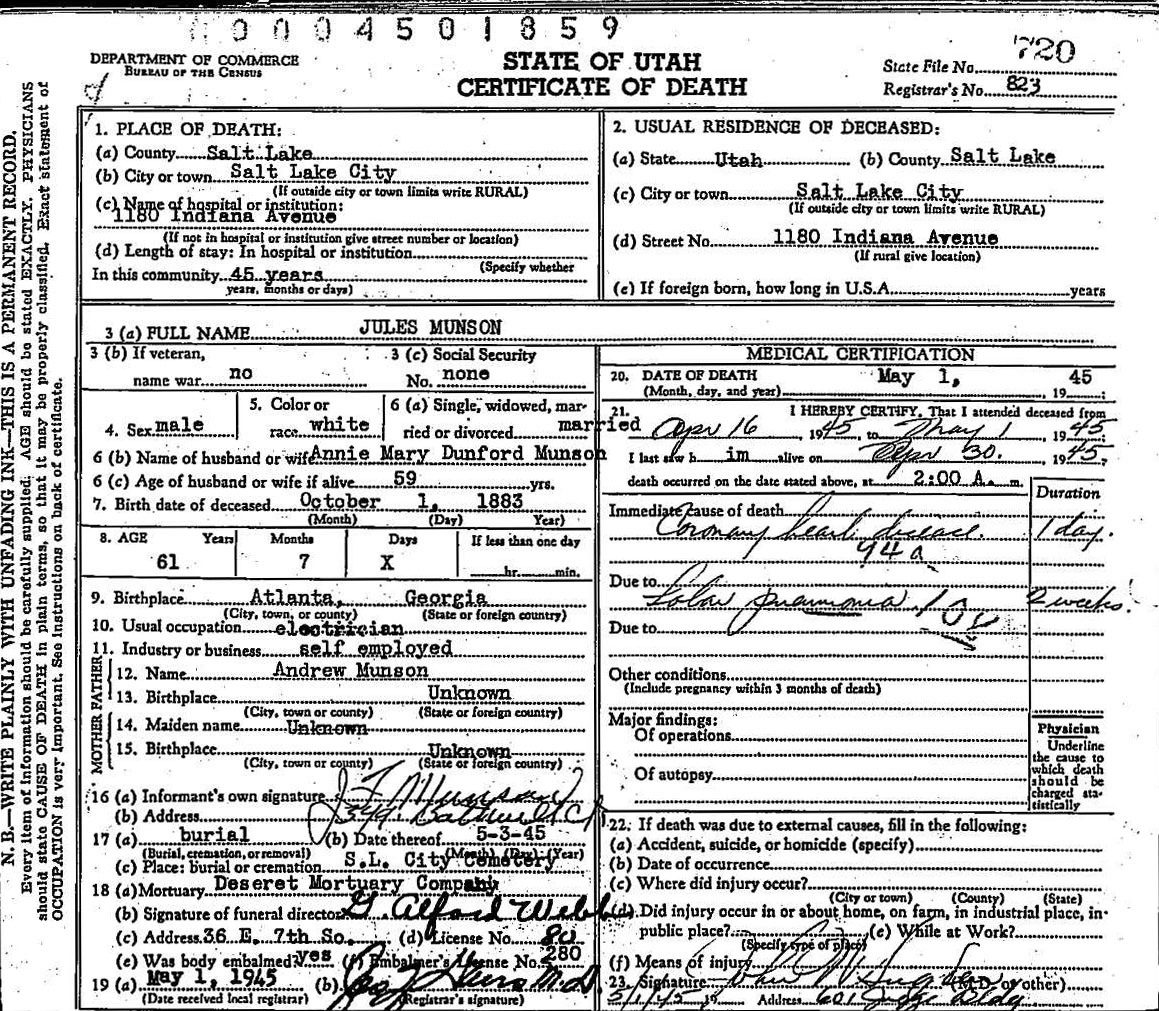 0004501859
DEPARTMENT OF COMMERCE
BUREAU OF THE CENSUS
STATE OF UTAH
CERTIFICATE OF DEATH
720
State File No.
Registrar's No. 823
N. B.—WRITE PLAINLY WITH UNFADING INK—THIS IS A PERMANENT RECORD.
Every item of information should be carefully supplied. AGE should be stated EXACTLY. PHYSICIANS
should state CAUSE OF DEATH in plain terms, so that it may be properly classified. Exact statement of
OCCUPATION is very important. See Instructions on back of certificate.
1. PLACE OF DEATH:
(a) County Salt Lake
(b) City or town Salt Lake City
(If outside city or town limits write RURAL)
(c) Name of hospital or institution:
1180 Indiana Avenue
(If not in hospital or institution give street number or location)
(d) Length of stay: In hospital or institution
(Specify whether
In this community 45 years
years, months or days)
2. USUAL RESIDENCE OF DECEASED:
(a) State Utah (b) County Salt Lake
(c) City or town Salt Lake City
(If outside city or town limits write RURAL)
(d) Street No. 1180 Indiana Avenue
(If rural give location)
(e) If foreign born, how long in U.S.A. years
3 (a) FULL NAME JULES MUNSON
3 (b) If veteran, 3 (c) Social Security
name war no No. none
4. Sex male 5. Color or race white 6 (a) Single, widowed, married or divorced married
6 (b) Name of husband or wife Annie Mary Dunford Munson
6 (c) Age of husband or wife if alive 59 yrs.
7. Birth date of deceased October 1, 1883
(Month) (Day) Year)
8. AGE Years Months Days If less than one day
61 7 X hr. min.
9. Birthplace Atlanta, Georgia
(City, town, or county) (State or foreign country)
10. Usual occupation electrician
11. Industry or business self employed
FATHER
12. Name Andrew Munson
13. Birthplace Unknown
(City, town or county) (State or foreign country)
MOTHER
14. Maiden name Unknown
15. Birthplace Unknown
(City, town or county) (State or foreign country)
16 (a) Informant's own signature Munson
(b) Address
17 (a) burial (b) Date thereof 5-3-45
(Burial, cremation, or removal) (Month) (Day) (Year)
(c) Place: burial or cremation S.L. City Cemetery
18 (a) Mortuary Deseret Mortuary Company
(b) Signature of funeral director G. Alford Webb
(c) Address 36 E. 7th So. (d) License No. 80
(e) Was body embalmed? yes (f) Embalmer's License No. 280
19 (a) May 1, 1945 (b) M.D.
(Date received local registrar) (Registrar's signature)
MEDICAL CERTIFICATION
20. DATE OF DEATH May 1, 19 45
(Month, day, and year)
21. I HEREBY CERTIFY, That I attended deceased from
Apr 16, 1945, to May 1 1945
I last saw h im alive on Apr 30. 1945,
death occurred on the date stated above, at 2:00 A. m.
Duration
Immediate cause of death
Coronary heart disease. 1 day.
94a
Due to
Lobar pneumonia 2 weeks.
Due to
Other conditions
(Include pregnancy within 3 months of death)
Major findings:
Of operations
Of autopsy
Physician
Underline
the cause to
which death
should be
charged sta-
tistically
22. If death was due to external causes, fill in the following:
(a) Accident, suicide, or homicide (specify)
(b) Date of occurrence
(c) Where did injury occur?
(City or town) (County) (State)
(d) Did injury occur in or about home, on farm, in industrial place, in-
public place? (e) While at Work?
(Specify type of place)
(f) Means of injury
23. Signature (M.D. or other)
5/1/45 19 Address 601 Judge Bldg